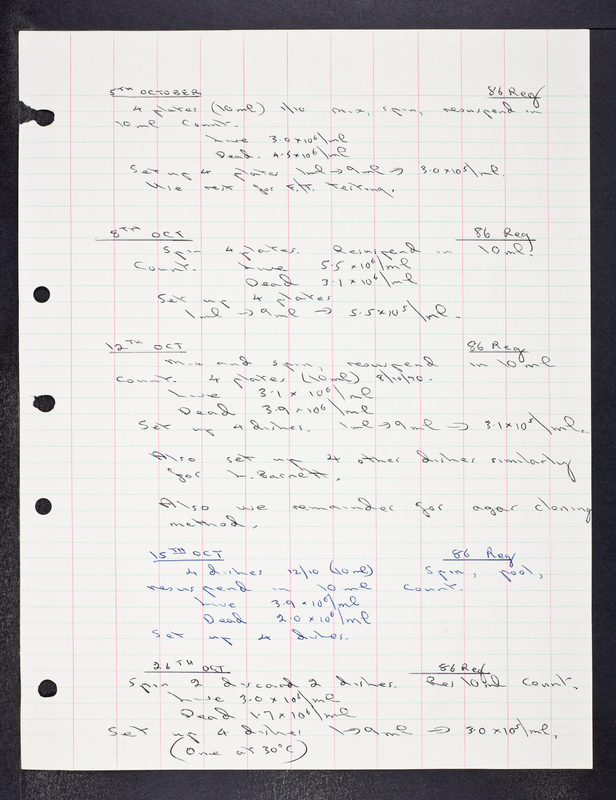 5TH OCTOBER 86 Reg
4 plates (10ml) 1/10 mix, spin, resuspend in
10 ml Count.
Live 3.0 x 10⁶/ml
Dead. 4.5 x 10⁶/ml
Set up 4 plates 1ml → 9ml → 3.0 x 10⁵/ml.
Use rest for F.T. Testing.
8TH OCT 86 Reg
Spin 4 plates. Resuspend in 10 ml.
Count. Live 5.5 x 10⁶/ml
Dead 3.1 x 10⁶/ml
Set up 4 plates
1ml → 9ml → 5.5 x 10⁵/ml.
12TH OCT 86 Reg.
Mix and spin, resuspend in 10 ml
Count. 4 plates (10ml) 8/10/70.
Live 3.1 x 10⁶/ml
Dead 3.9 x 10⁶/ml
Set up 4 dishes. 1ml → 9ml → 3.1 x 10⁵/ml.
Also set up 4 other dishes similarly
for L. Barnett.
Also use remainder for agar cloning
method.
15TH OCT 86 Reg
4 dishes 12/10 (10ml) Spin, pool,
resuspend in 10 ml Count.
Live 3.9 x 10⁶/ml
Dead 2.0 x 10⁶/ml
Set up 4 dishes.
26TH OCT 86 Reg
Spin 2 discard 2 dishes. Res 10ml Count.
Live 3.0 x 10⁶/ml
Dead 1.7 x 10⁶/ml
Set up 4 dishes 1 → 9ml → 3.0 x 10⁵/ml.
(One at 30°C)